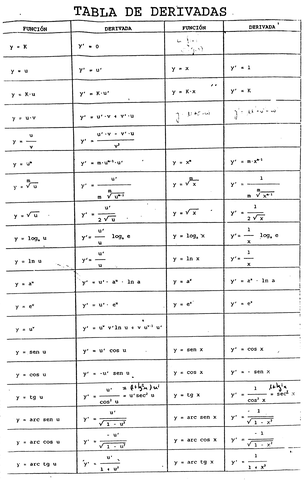 TABLA DE DERIVADAS
FUNCIÓN DERIVADA FUNCIÓN DERIVADA
y = K y' = 0
y = u y' = u' y = x y' = 1
y = K·u y' = K·u' y = K·x y' = K
y = u·v y' = u'·v + v'·u
y = u/v y' = (u'·v - v'·u)/v²
y = uᵐ y' = m·uᵐ⁻¹·u' y = xᵐ y' = m·xᵐ⁻¹
y = ᵐ√u y' = u'/(m ᵐ√uᵐ⁻¹) y = ᵐ√x y' = 1/(m ᵐ√xᵐ⁻¹)
y = √u y' = u'/(2√u) y = √x y' = 1/(2√x)
y = logₐ u y' = u'/u logₐ e y = logₐ x y' = 1/x logₐ e
y = ln u y' = u'/u y = ln x y' = 1/x
y = aᵘ y' = u'·aᵘ·ln a y = aˣ y' = aˣ·ln a
y = eᵘ y' = u'·eᵘ y = eˣ y' = eˣ
y = uᵛ y' = uᵛ v' ln u + v uᵛ⁻¹ u'
y = sen u y' = u' cos u y = sen x y' = cos x
y = cos u y' = -u' sen u y = cos x y' = - sen x
y = tg u y' = u'/cos² u = u' sec² u y = tg x y' = 1/cos² x = sec² x
y = arc sen u y' = u'/√(1 - u²) y = arc sen x y' = 1/√(1 - x²)
y = arc cos u y' = - u'/√(1 - u²) y = arc cos x y' = - 1/√(1 - x²)
y = arc tg u y' = u'/(1 + u²) y = arc tg x y' = 1/(1 + x²)